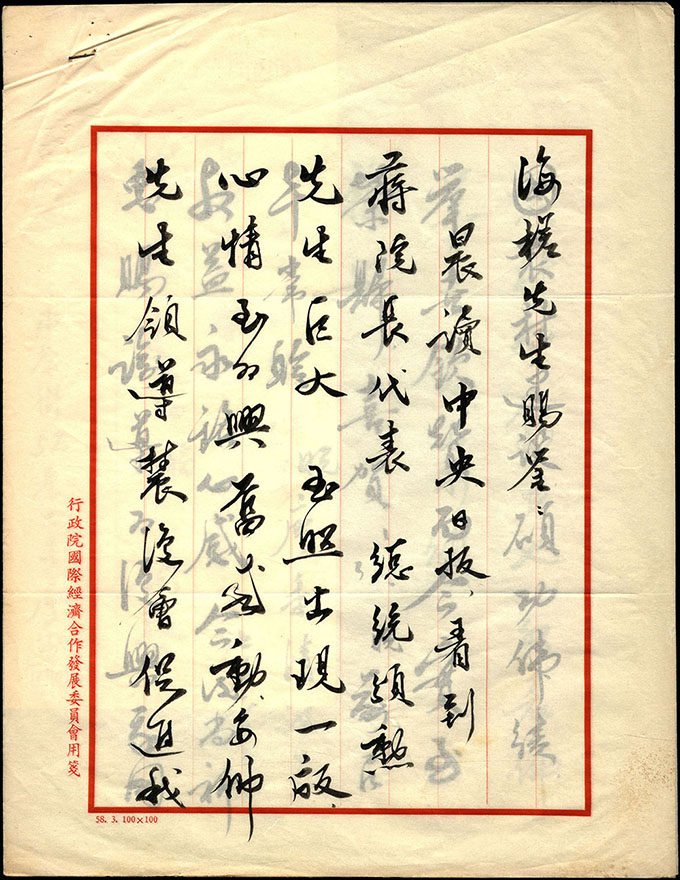 海槎先生賜鑒：
晨讀中央日報，看到
蔣院長代表 總統頒勳
先生巨大 玉照出現一版，
心情至為興奮感動，
先生領導農復會促進我
行政院國際經濟合作發展委員會用箋
58. 3. 100×100